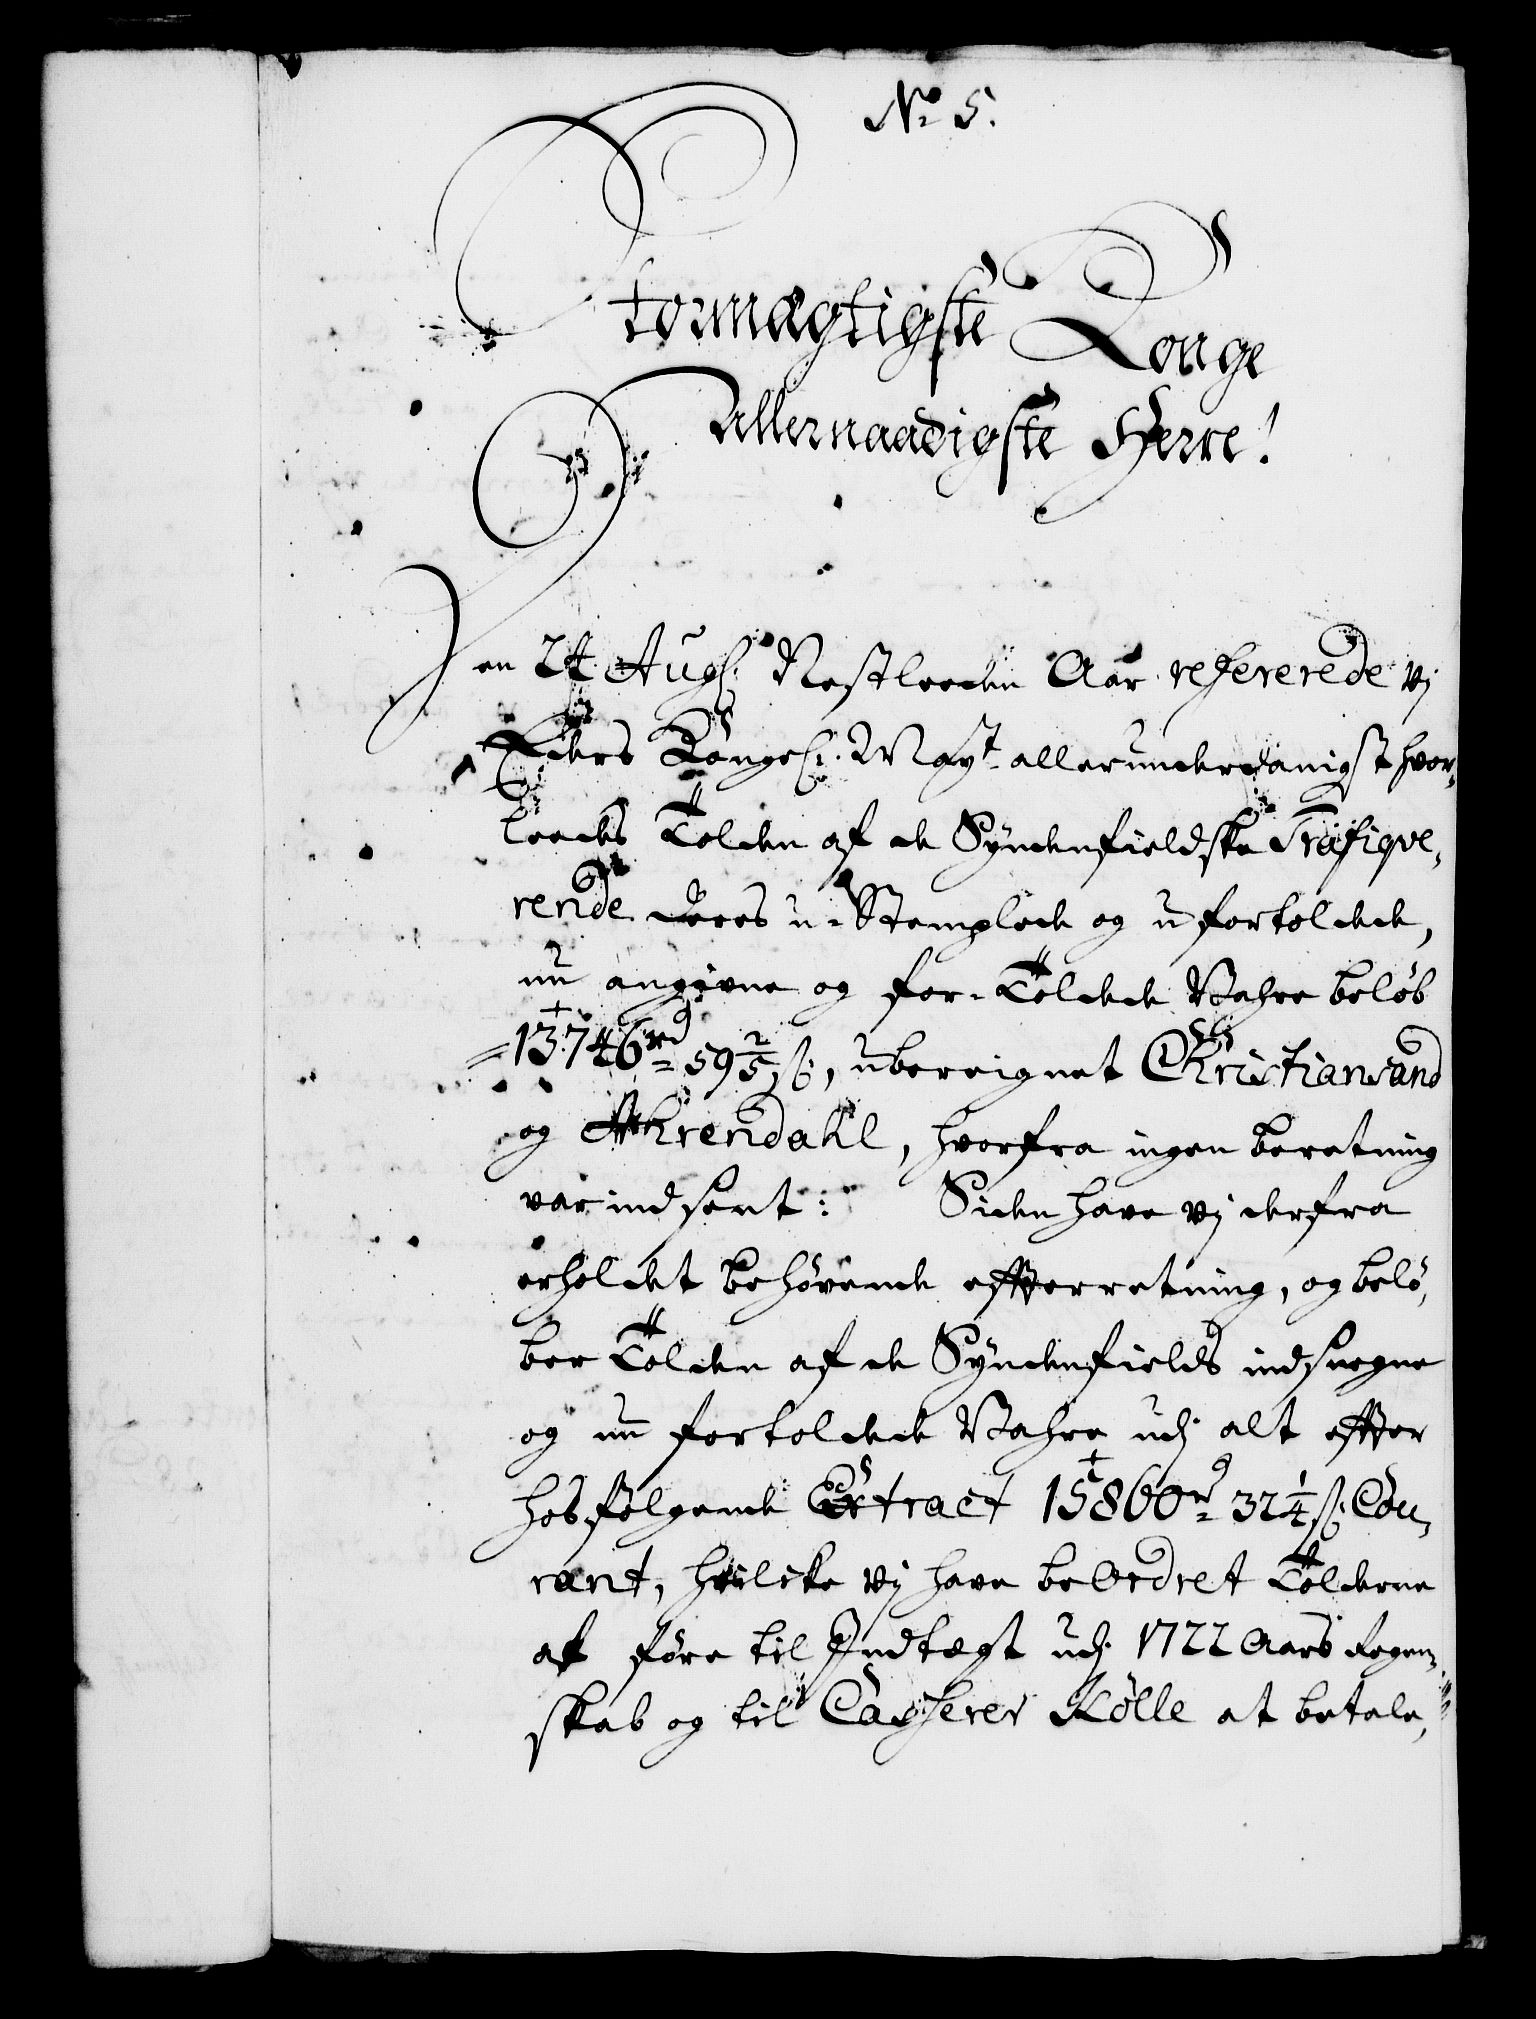 No 5.
Stormægtigste Konge
Allernaadigste Herre!
Den 24 Augs: Nestleeden Aar refererede vj
Eders Kongel: Mayt allerunderdanigst hvor-
leedes Tolden af de Syndenfieldske Trafiqve-
rende deres u-Stemplede og ufortoldede,
nu angivne og for-Toldede Vahre beløb
13746rd 59 2/5 ß, ubereignet Christiansand
og Ahrendahl, hvorfra ingen beretning
var indsent: Siden have vj derfra
erholdet behøvende efterretning, og belø,
ber Tolden af de Syndenfields indsvegne
og nu fortoldede Vahre udj alt efter
hosfølgende Extract 15860rd 32 1/4 ß Cou,
rant, hvilcke vj have beordret Tolderne
at føre til Indtægt udj 1722 Aars Regen-
skab og til Casserer Kølle at betale,